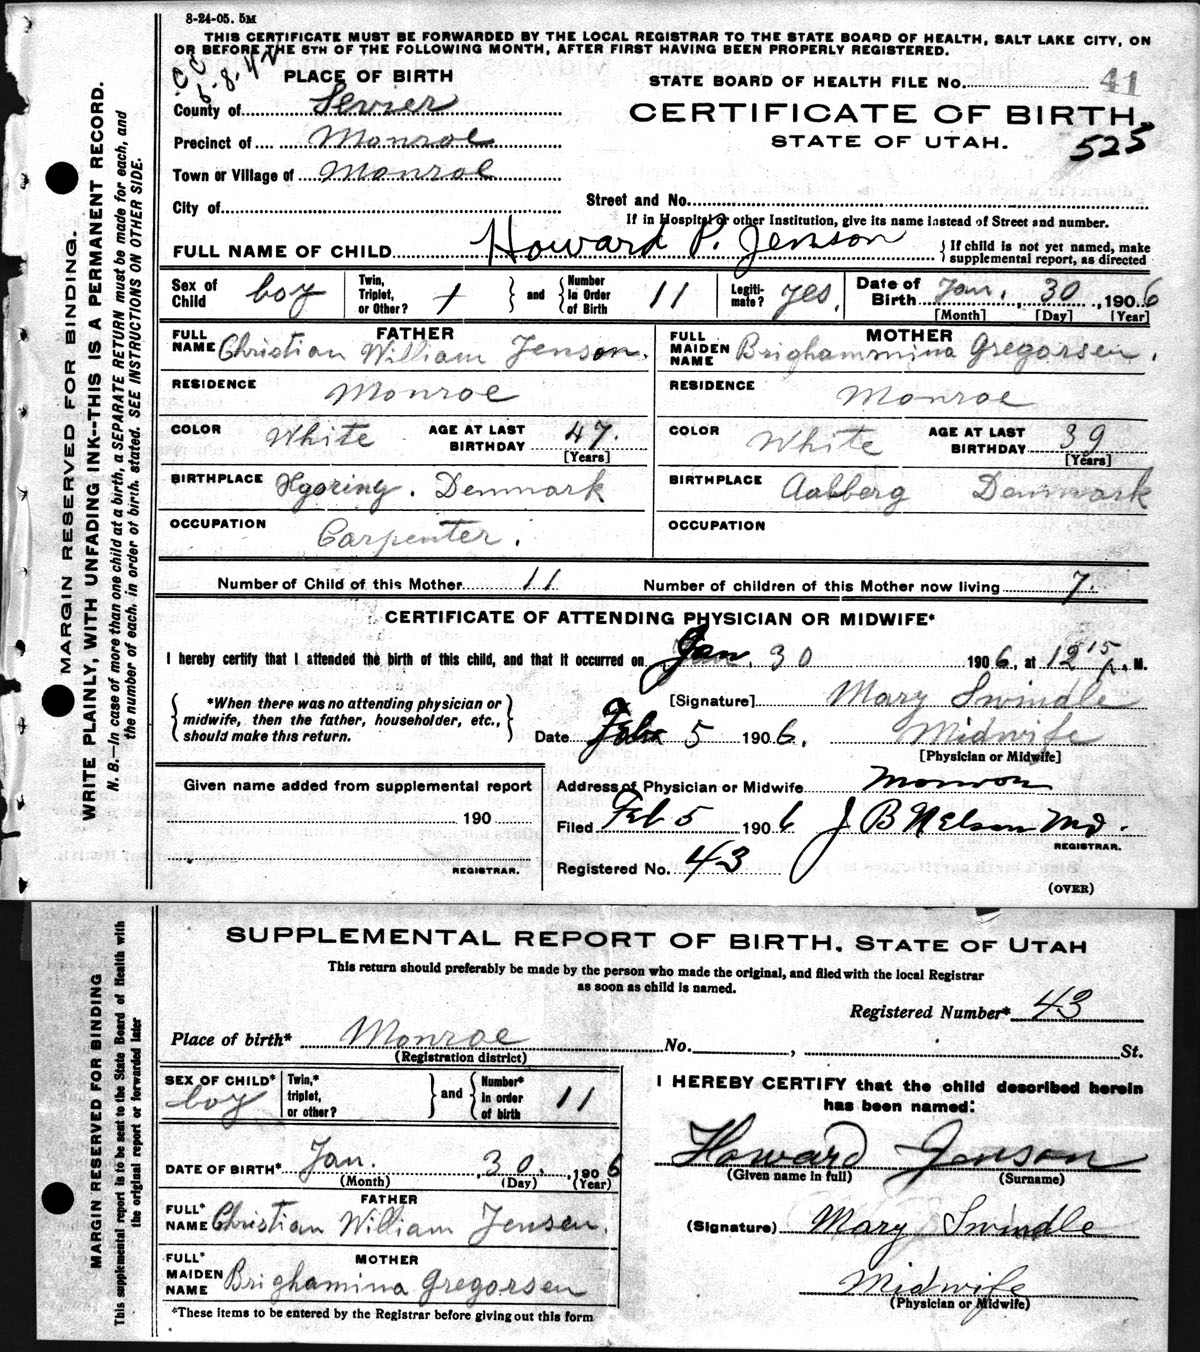 8-24-05. 5M
THIS CERTIFICATE MUST BE FORWARDED BY THE LOCAL REGISTRAR TO THE STATE BOARD OF HEALTH, SALT LAKE CITY, ON
OR BEFORE THE 5TH OF THE FOLLOWING MONTH, AFTER FIRST HAVING BEEN PROPERLY REGISTERED.
C C
6-8-42
PLACE OF BIRTH
STATE BOARD OF HEALTH FILE No. 41
County of Sevier
CERTIFICATE OF BIRTH.
Precinct of Monroe
STATE OF UTAH.
525
Town or Village of Monroe
City of
Street and No.
If in Hospital or other Institution, give its name instead of Street and number.
FULL NAME OF CHILD Howard P. Jenson
} If child is not yet named, make supplemental report, as directed
Sex of Child boy Twin, Triplet, or Other? + } and { Number In Order of Birth 11 Legiti-mate? yes. Date of Birth Jan. 30, 1906
[Month] [Day] [Year]
FATHER
FULL NAME Christian William Jenson.
RESIDENCE
Monroe
COLOR White AGE AT LAST BIRTHDAY 47.
[Years]
BIRTHPLACE Hgoring. Denmark
OCCUPATION
Carpenter.
MOTHER
FULL MAIDEN NAME Brighammina Gregorsen.
RESIDENCE
Monroe
COLOR White AGE AT LAST BIRTHDAY 39
[Years]
BIRTHPLACE Aalberg Denmark
OCCUPATION
Number of Child of this Mother 11 Number of children of this Mother now living 7.
CERTIFICATE OF ATTENDING PHYSICIAN OR MIDWIFE*
I hereby certify that I attended the birth of this child, and that it occurred on Jan. 30 1906, at 12 15 . M.
{ *When there was no attending physician or midwife, then the father, householder, etc., should make this return. }
[Signature] Mary Swindle
Date Feb 5 1906, Midwife
[Physician or Midwife]
Given name added from supplemental report
190
REGISTRAR.
Address of Physician or Midwife
Filed Feb 5 1906 J B Nelson MD.
REGISTRAR.
Registered No. 43
(OVER)
MARGIN RESERVED FOR BINDING.
WRITE PLAINLY, WITH UNFADING INK--THIS IS A PERMANENT RECORD.
N. B.—In case of more than one child at a birth, a SEPARATE RETURN must be made for each, and
the number of each, in order of birth, stated. SEE INSTRUCTIONS ON OTHER SIDE.
SUPPLEMENTAL REPORT OF BIRTH, STATE OF UTAH
This return should preferably be made by the person who made the original, and filed with the local Registrar
as soon as child is named.
Registered Number* 43
Place of birth* Monroe No. , St.
(Registration district)
SEX OF CHILD* boy Twin,* triplet, or other? } and { Number* in order of birth 11
DATE OF BIRTH* Jan. 30, 1906
(Month) (Day) (Year)
FATHER
FULL* NAME Christian William Jensen.
MOTHER
FULL* MAIDEN NAME Brighamina Gregorsen
*These items to be entered by the Registrar before giving out this form
I HEREBY CERTIFY that the child described herein
has been named:
Howard Jenson
(Given name in full) (Surname)
(Signature) Mary Swindle
Midwife
(Physician or Midwife)
MARGIN RESERVED FOR BINDING
This supplemental report is to be sent to the State Board of Health with
the original report or forwarded later